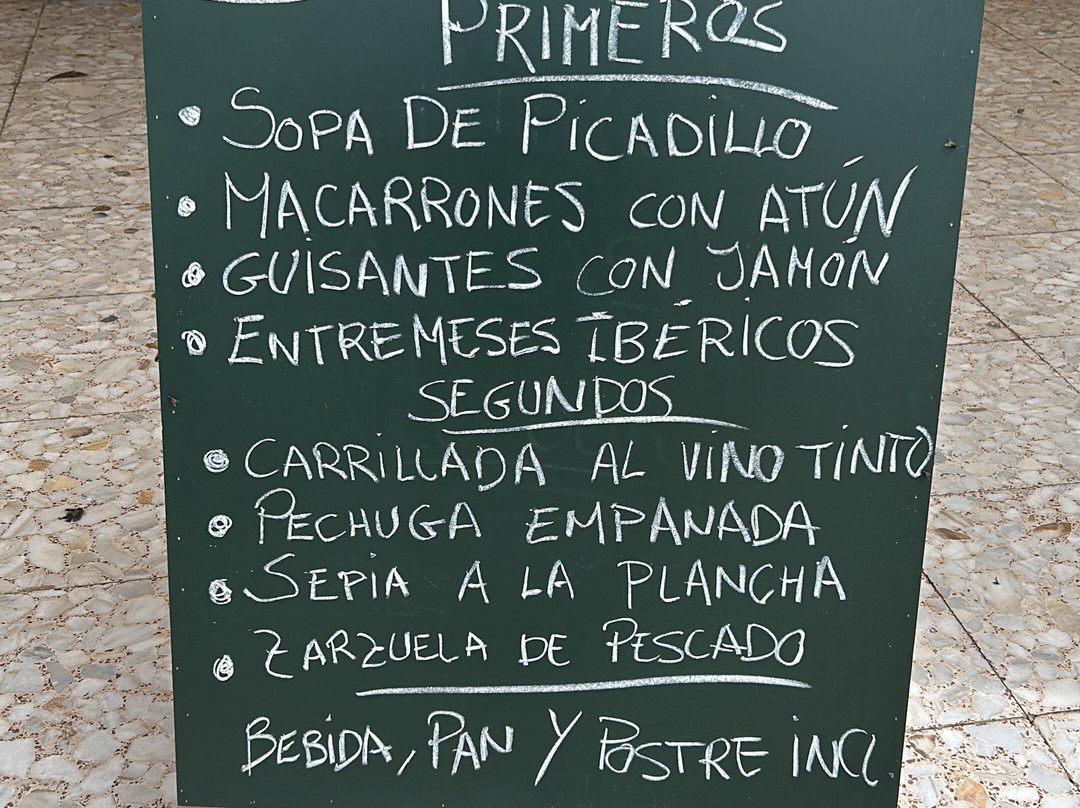 PRIMEROS
• SOPA DE PICADILLO
• MACARRONES CON ATÚN
• GUISANTES CON JAMÓN
• ENTREMESES IBÉRICOS
SEGUNDOS
• CARRILLADA AL VINO TINTO
• PECHUGA EMPANADA
• SEPIA A LA PLANCHA
• ZARZUELA DE PESCADO
BEBIDA, PAN Y POSTRE INCL